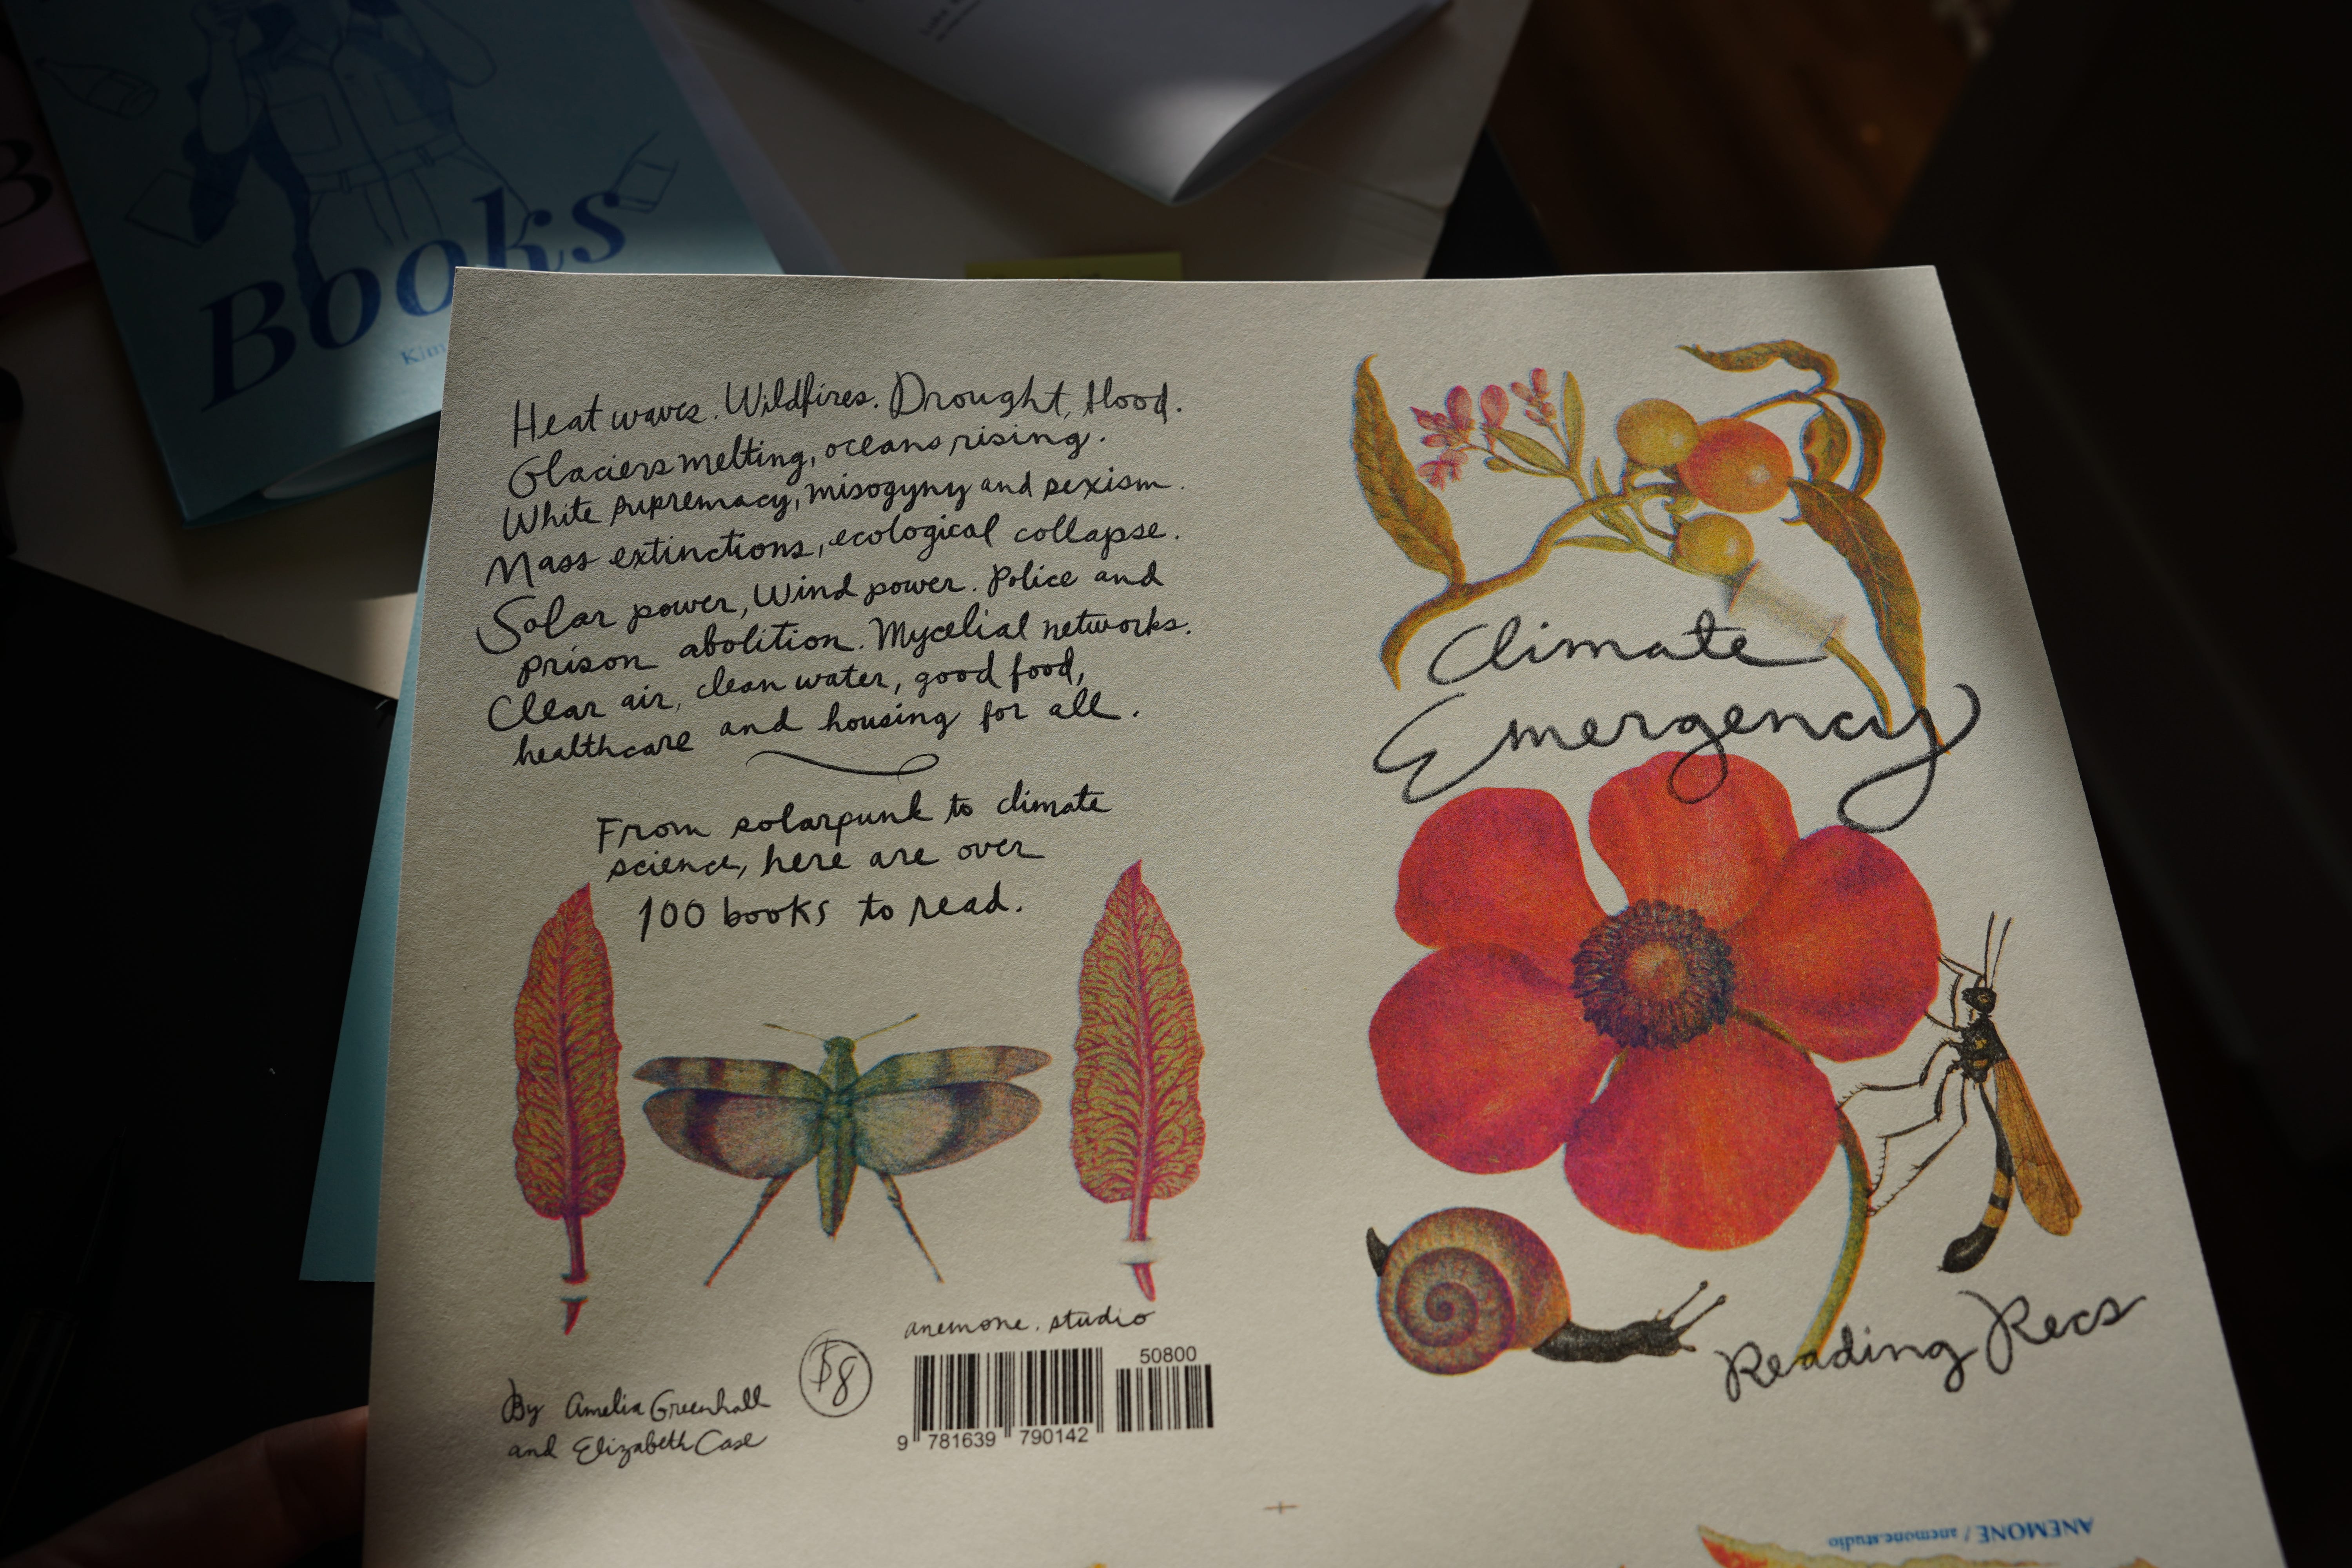 Books
Kim
Heat waves. Wildfires. Drought, flood.
Glaciers melting, oceans rising.
White supremacy, misogyny and sexism.
Mass extinctions, ecological collapse.
Solar power, Wind power. Police and
prison abolition. Mycelial networks.
Clear air, clean water, good food,
healthcare and housing for all.
From solarpunk to climate
science, here are over
100 books to read.
anemone.studio
$8
50800
9 781639 790142
By Amelia Greenhall
and Elizabeth Case
Climate
Emergency
Reading Recs
ANEMONE / anemone.studio